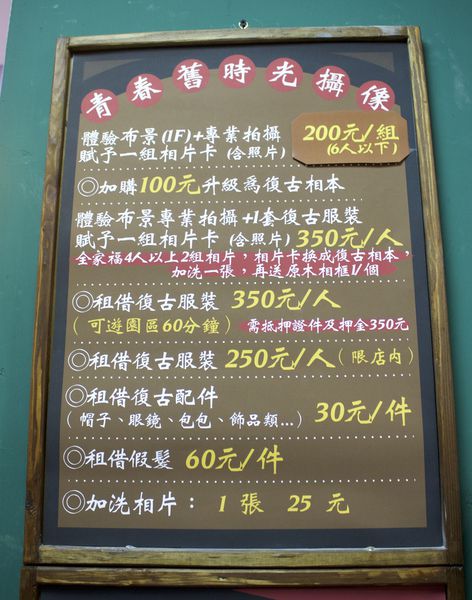 青春舊時光攝像
體驗布景(1F)+專業拍攝
賦予一組相片卡 (含照片)
200元/組
(6人以下)
◎加購100元升級為復古相本
體驗布景專業拍攝+1套復古服裝
賦予一組相片卡 (含照片) 350元/人
全家福4人以上2組相片,相片卡換成復古相本,
加洗一張,再送原木相框1/個
◎租借復古服裝 350元/人
(可遊園區60分鐘) 需抵押證件及押金350元
◎租借復古服裝 250元/人(限店內)
◎租借復古配件
(帽子、眼鏡、包包、飾品類...) 30元/件
◎租借假髮 60元/件
◎加洗相片: 1 張 25 元